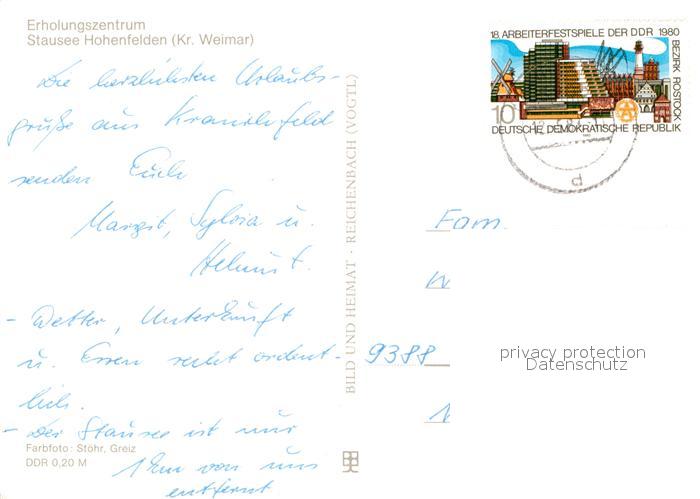 Erholungszentrum
Stausee Hohenfelden (Kr. Weimar)
18. ARBEITERFESTSPIELE DER DDR 1980
BEZIRK ROSTOCK
10
DEUTSCHE DEMOKRATISCHE REPUBLIK
d
Die herzlichsten Urlaubs-
grüße aus Kranichfeld
senden Euch
Margit, Sylvia u.
Helmut.
- Wetter, Unterkunft
u. Essen recht ordent-
lich.
- Der Stausee ist nur
1 km von uns
entfernt
Farbfoto: Stöhr, Greiz
DDR 0,20 M
BILD UND HEIMAT · REICHENBACH (VOGTL)
Fam.
W
9388
privacy protection
Datenschutz